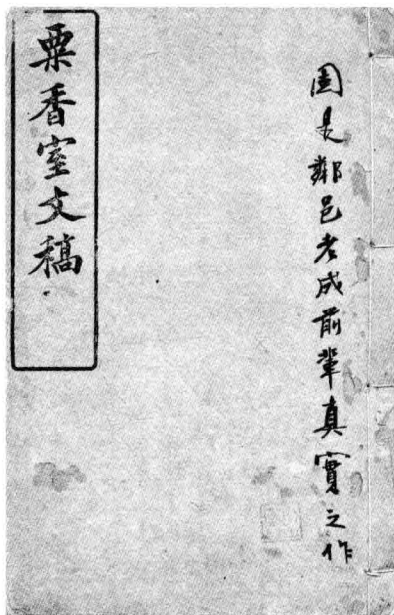 固是鄰邑老成前輩真實之作
粟香室文稿